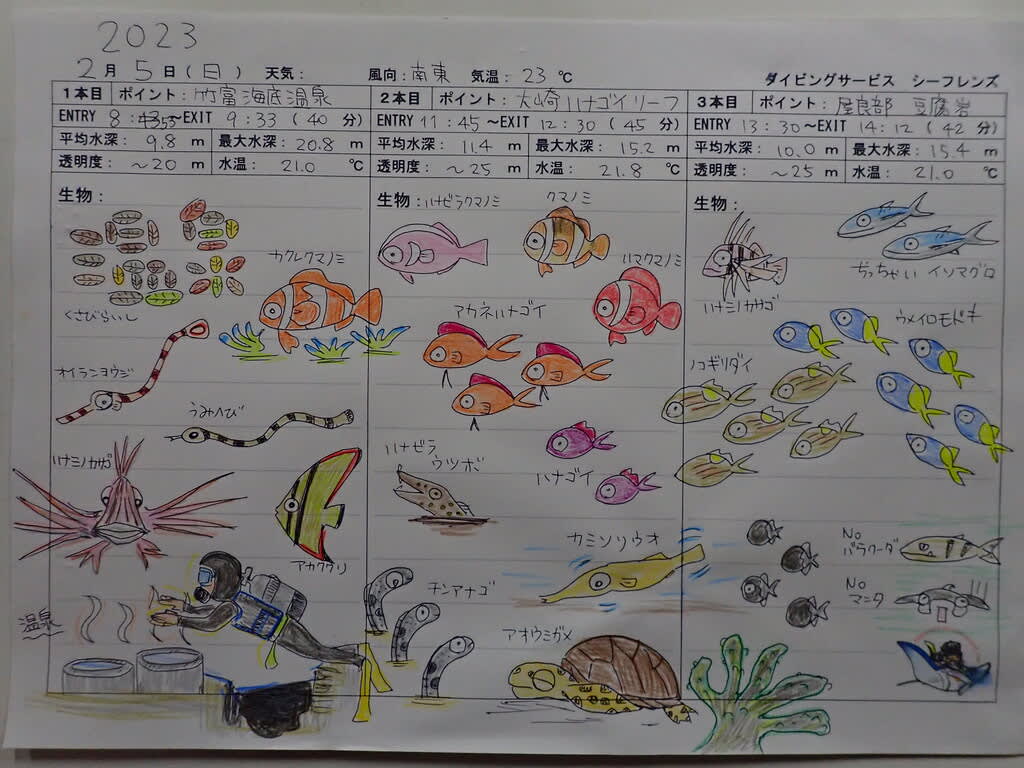 2023
2月 5日(日) 天気: 風向: 南東 気温: 23 ℃ ダイビングサービス シーフレンズ
1本目 ポイント: 竹富海底温泉
ENTRY 8: EXIT 9:33 (40 分)
平均水深: 9.8 m 最大水深: 20.8 m
透明度: ~20 m 水温: 21.0 ℃
生物:
カクレクマノミ
くさびらいし
オイランヨウジ
うみへび
ハナミノカサゴ
アカククリ
温泉
2本目 ポイント: 大崎ハナゴイリーフ
ENTRY 11:45~EXIT 12:30 (45 分)
平均水深: 11.4 m 最大水深: 15.2 m
透明度: ~25 m 水温: 21.8 ℃
生物: ハナビラクマノミ クマノミ
ハマクマノミ
アカネハナゴイ
ハナビラ
ウツボ
ハナゴイ
カミソリウオ
チンアナゴ
アオウミガメ
3本目 ポイント: 屋良部 豆腐岩
ENTRY 13:30~EXIT 14:12 (42 分)
平均水深: 10.0 m 最大水深: 15.4 m
透明度: ~25 m 水温: 21.0 ℃
生物:
ぢっちゃい イソマグロ
ハナミノカサゴ
ウメイロモドキ
ノコギリダイ
No
バラクーダ
No
マンタ